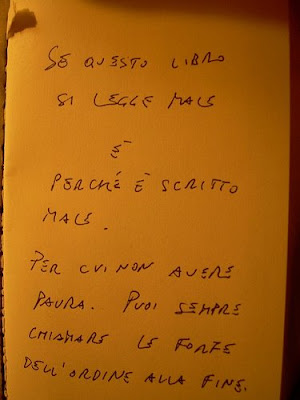 SE QUESTO LIBRO
SI LEGGE MALE
È
PERCHÉ È SCRITTO
MALE.
PER CUI NON AVERE
PAURA. PUOI SEMPRE
CHIAMARE LE FORZE
DELL'ORDINE ALLA FINE.